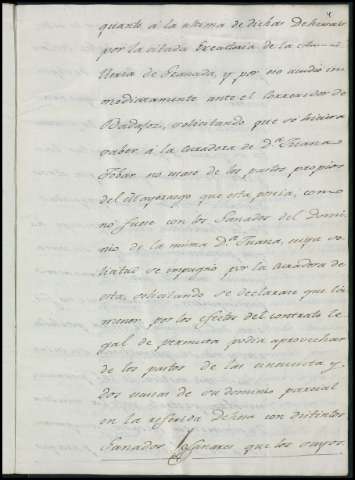 quanto á la ultima de dichas Dehesas
por la citada Executoria de la Chan-
cilleria de Granada, y por no acudio in-
mediatamente ante el Corregidor de
Badajoz, solicitando que se hiciera
saber á la Curadora de D.ª Juana
Tobar no usase de los pastos propios
del Mayorazgo que esta poseia, como
no fuese con los Ganados del Domi-
nio de la misma D.ª Juana, cuya so-
licitud se impugno por la Curadora de
esta, solicitando se declarase que la
menor por los efectos del contrato le-
gal de permuta podia aprovechar
de los pastos de las cincuenta y
dos vacas de su dominio parcial
en la referida dehesa con distintos
Ganados que los suyos